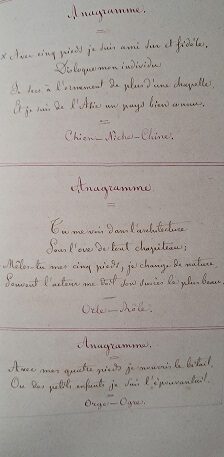 Anagramme.
x Avec cinq pieds je suis ami sûr et fidèle,
Disloque mon individu
Je sers à l'ornement de plus d'une chapelle
Et je suis de l'Asie un pays bien connu.
Chien – Niche – Chine.
Anagramme.
Tu me vois dans l'architecture
Sous l'ove de tout chapiteau;
Mêles-tu mes cinq pieds, je change de nature
Souvent l'acteur me doit son succès le plus beau.
Orle – Rôle.
Anagramme.
Avec mes quatre pieds je nourris le bétail,
Ou des petits enfants je suis l'épouvantail.
Orge – Ogre.